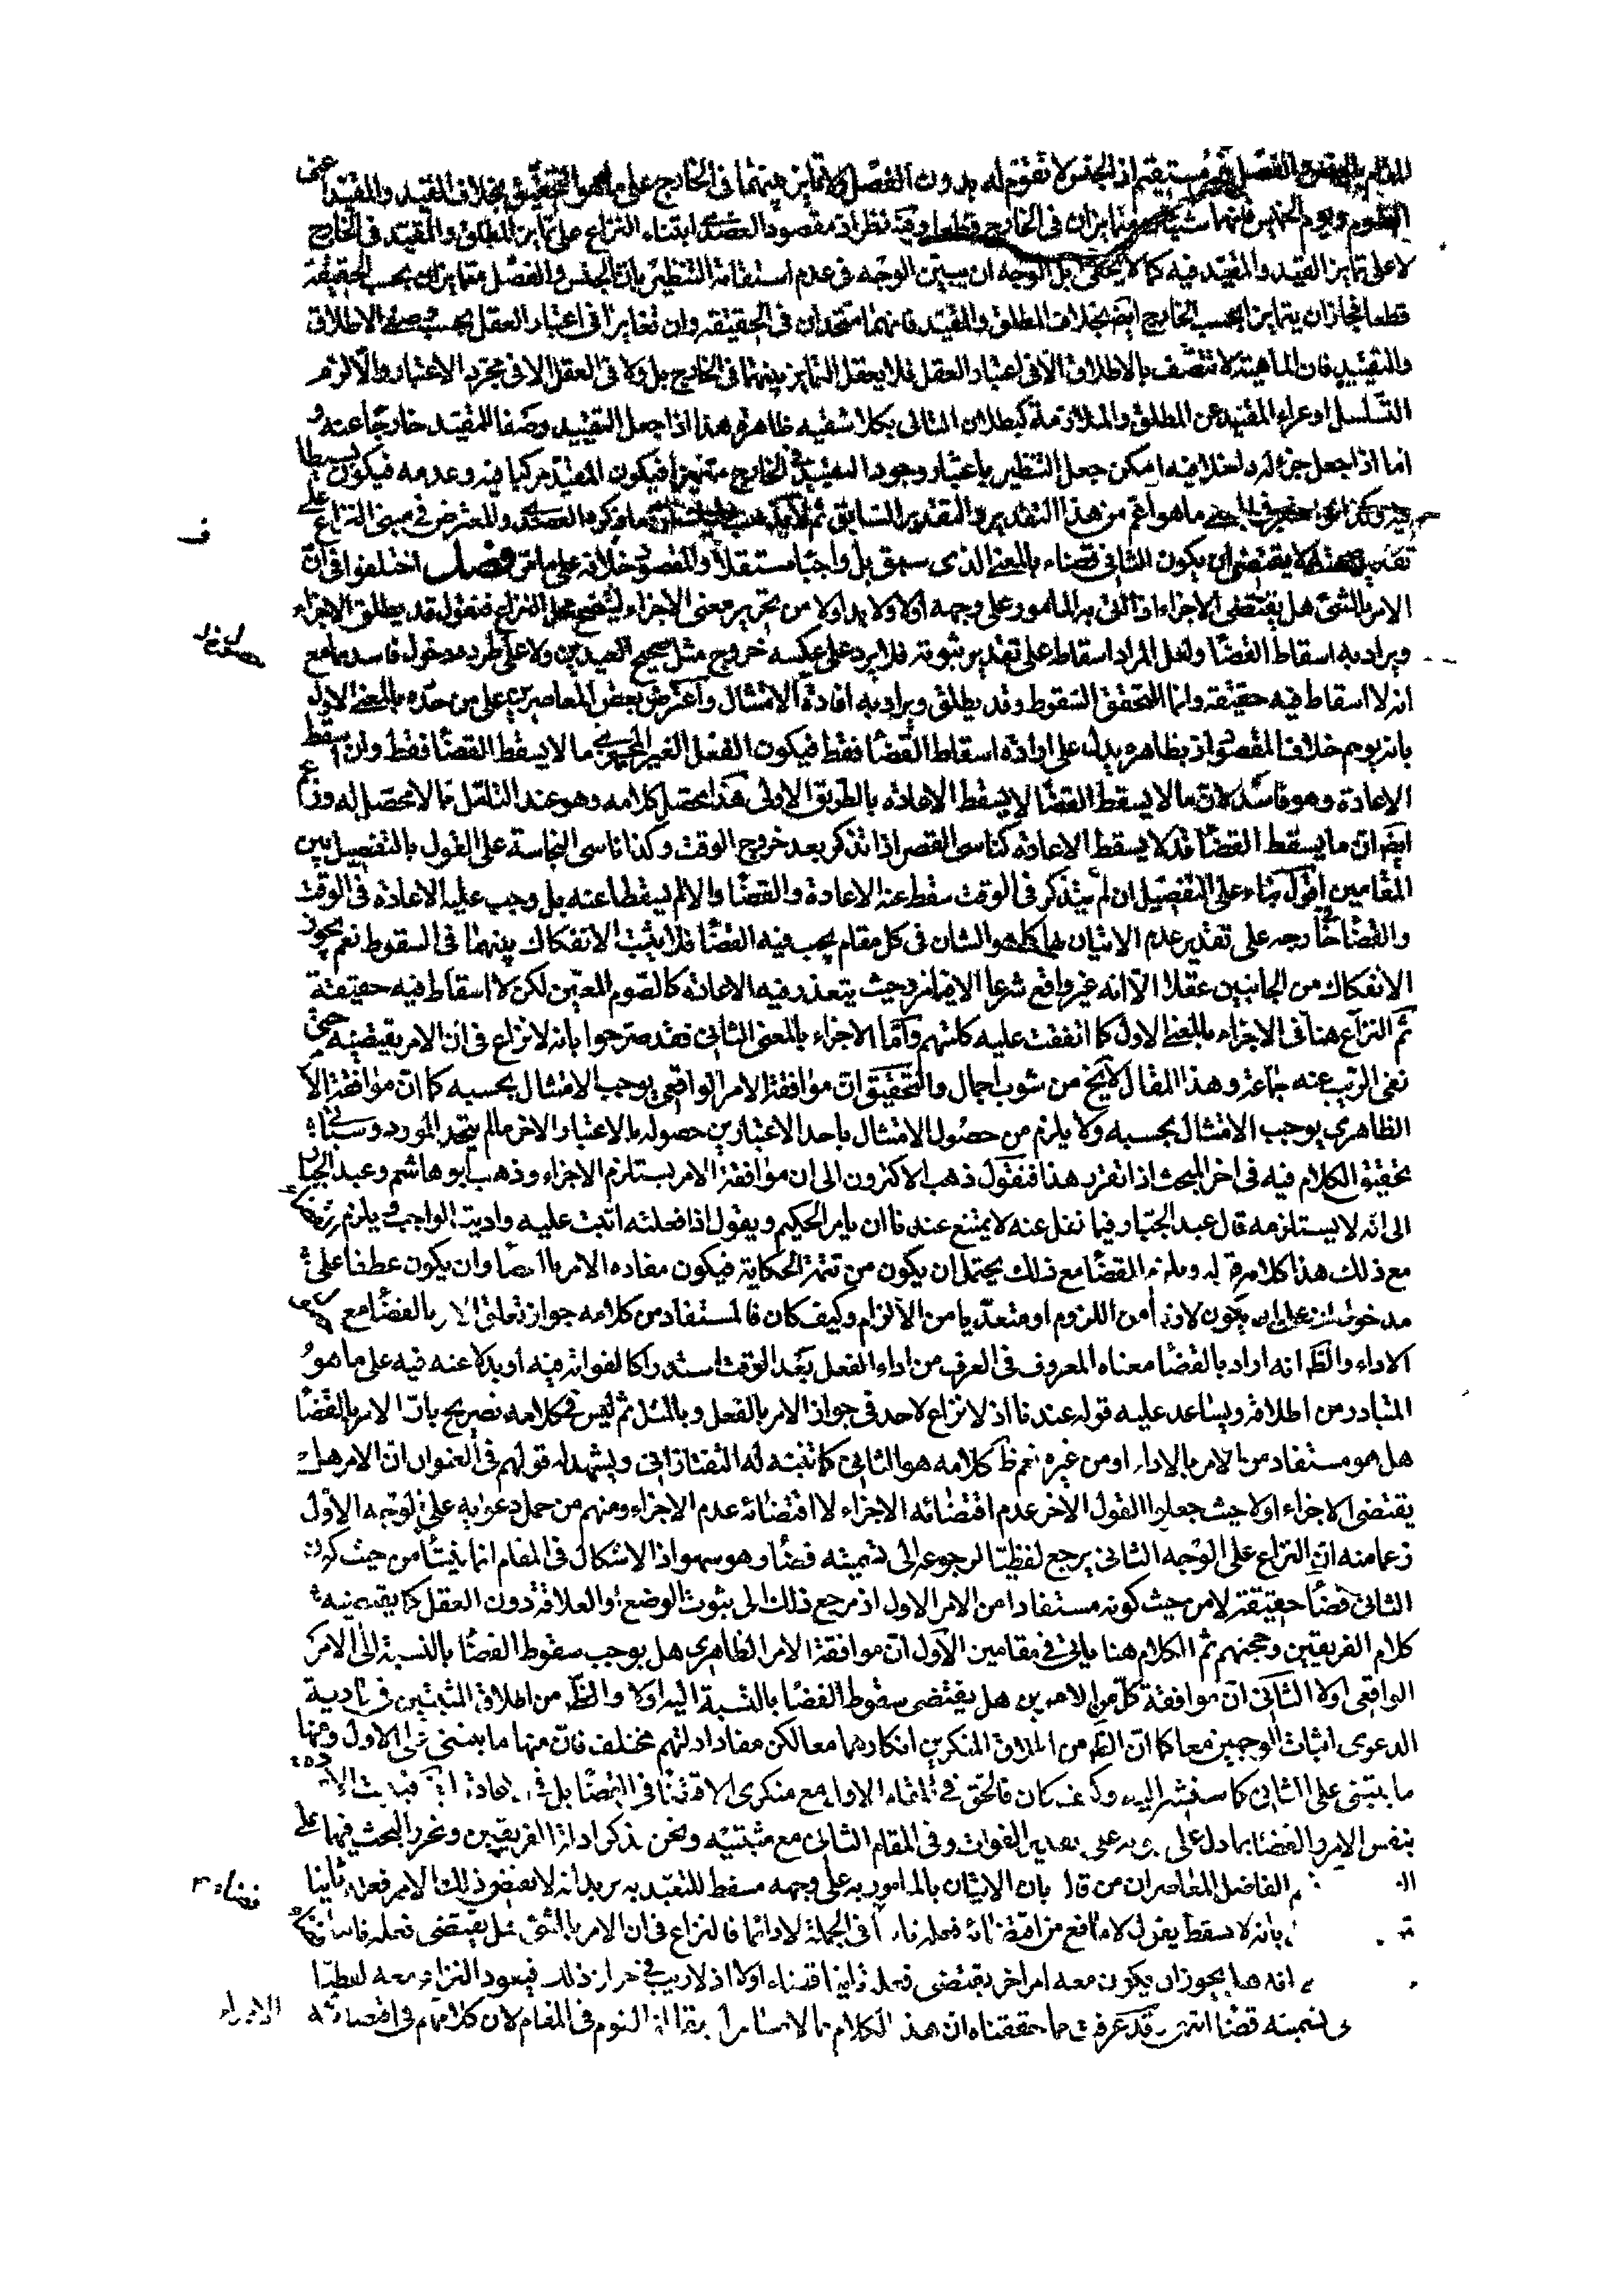 للتنظير بالجنس والفصل غير مستقيم اذ الجنس لا تقوم له بدون الفصل ولا تمايز بينهما فى الخارج على ما هو التحقيق بخلاف المقيد والمقيد اعنى
الصوم ويوم الخميس فانهما شيئان متمايزان فى الخارج قطعا وفيه نظر اذ مقصود العضدى ابتناء النزاع على تمايز المطلق والمقيد فى الخارج
لا على تمايز القيد والمقيد فيه كما لا يخفى بل الوجه ان يبين الوجه فى عدم استقامة التنظير بان الجنس والفصل متمايزان بحسب الحقيقة
قطعا فجاز ان يتمايزا بحسب الخارج ايضا بخلاف المطلق والمقيد فانهما متحدان فى الحقيقة وان تغايرا فى اعتبار العقل بحسب وصفى الاطلاق
والتقييد فان الماهية لا تتصف بالاطلاق الا فى اعتبار العقل فلا يعقل التمايز بينهما فى الخارج بل ولا فى العقل الا فى مجرد الاعتبار والا لزم
التسلسل او عراء المقيد عن المطلق والملازمة كبطلان التالى بكلا شقيه ظاهرة هذا اذا جعل التقييد وصفا للمقيد خارجا عنه و
اما اذا جعل جزء له داخلا فيه امكن جعل التنظير باعتبار وجود التقييد فى الخارج متميزا فيكون المقيد مركبا فيه وعدمه فيكون بسيطا
فيه ما هو اعم من هذا التقدير والتقدير السابق ثم ما ذكره العضدى والمعترض فى مبنى النزاع على
تقدير لا يقتضى ان يكون الثانى قضاء بالمعنى الذى سبق بل واجبا مستقلا والمقصود خلافه على ما مر فصل اختلفوا فى ان
الامر بالشئ هل يقتضى الاجزاء اذا اتى به المامور على وجهه اولا ولا بد اولا من تحرير معنى الاجزاء ليتضح محل النزاع فنقول قد يطلق الاجزاء
ويراد به اسقاط القضاء ولعل المراد اسقاط على تقدير ثبوته فلا يرد على عكسه خروج مثل صحيح العيدين ولا على طرده دخول فاسدهما مع
انه لا اسقاط فيه حقيقة وانما المتحقق السقوط وقد يطلق ويراد به افادة الامتثال واعترض بعض المعاصرين على من حده بالمعنى الاول
بانه يوهم خلاف المقصود اذ بظاهره يدل على ارادة اسقاط القضاء فقط فيكون الفعل الغير المجزى ما لا يسقط القضاء فقط وان اسقط
الاعادة وهو فاسد لان ما لا يسقط القضاء لا يسقط الاعادة بالطريق الاولى هذا محصل كلامه وهو عند التامل مما لا محصل له وزعم
ايضا ان ما يسقط القضاء قد لا يسقط الاعادة كناسى القصر اذا تذكر بعد خروج الوقت وكذا ناسى النجاسة على القول بالتفصيل بين
المقامين اقول بناء على التفصيل ان لم يتذكر فى الوقت سقط عنه الاعادة والقضاء والا لم يسقطا عنه بل وجب عليه الاعادة فى الوقت
والقضاء فى خارجه على تقدير عدم الاتيان بها كما هو الشان فى كل مقام يجب فيه القضاء فلا يثبت الانفكاك بينهما فى السقوط نعم يجوز
الانفكاك من الجانبين عقلا الا انه غير واقع شرعا الا فى حيث يتعذر فيه الاعادة كالصوم المعين لكن لا اسقاط فيه حقيقة
ثم النزاع هنا فى الاجزاء بالمعنى الاول كما اتفقت عليه كلمتهم واما الاجزاء بالمعنى الثانى فقد صرحوا بانه لا نزاع فى ان الامر يقتضيه حتى
نفى الريب عنه جماعة وهذا المقال لا يخ من شوب اجمال والتحقيق ان موافقة الامر الواقعى يوجب الامتثال بحسبه كما ان موافقة الامر
الظاهرى يوجب الامتثال بحسبه ولا يلزم من حصول الامتثال باحد الاعتبارين حصوله بالاعتبار الاخر ما لم يتحد المورد وسياتى
تحقيق الكلام فيه فى اخر المبحث اذا تقرر هذا فنقول ذهب الاكثرون الى ان موافقة الامر يستلزم الاجزاء وذهب ابو هاشم وعبد الجبار
الى انه لا يستلزمه قال عبد الجبار فيما نقل عنه لا يمتنع عندنا ان يامر الحكيم ويقول اذا فعلته اتيت عليه واديت الواجب ويلزم القضاء
مع ذلك هذا كلامه ويلزم القضاء مع ذلك يحتمل ان يكون من تتمة الحكاية فيكون مفاده الامر بالقضاء وان يكون عطفا على
مدخول ان يكون لازما من اللزوم او متعديا من الالزام وكيف كان فالمستفاد من كلامه جواز تعلق الامر بالقضاء مع
الاداء والظ انه اراد بالقضاء معناه المعروف فى العرف من اداء الفعل بعد الوقت استدراكا لفواته فيه او بدلا عنه فيه على ما هو
المتبادر من اطلاقه ويساعد عليه قوله عندنا اذ لا نزاع لاحد فى جواز الامر بالفعل وبالمثل ثم ليس فى كلامه تصريح بان الامر بالقضاء
هل هو مستفاد من الامر بالاداء او من غيره نعم ظ كلامه هو الثانى كما تنبه له التفتازانى ويشهد له قولهم فى العنوان ان الامر هل
يقتضى الاجزاء اولا حيث جعلوا القول الاخر عدم اقتضائه الاجزاء لا اقتضائه عدم الاجزاء ومنهم من حمل دعويه على الوجه الاول
زعما منه ان النزاع على الوجه الثانى يرجع لفظيا لرجوعه الى تسميته قضاء وهو سهو اذ الاشكال فى المقام انما ينشأ من حيث كون
الثانى قضاء حقيقة لا من حيث كونه مستفادا من الامر الاول اذ مرجع ذلك الى ثبوت الوضع او العلاقة دون العقل كما يقتضيه
كلام الفريقين وحجتهم ثم الكلام هنا ياتى فى مقامين الاول ان موافقة الامر الظاهرى هل يوجب سقوط القضاء بالنسبة الى الامر
الواقعى اولا الثانى ان موافقة كل من الامرين هل يقتضى سقوط القضاء بالنسبة اليه اولا والظ من اطلاق المثبتين فى تادية
الدعوى اثبات الوجهين معا كما ان الظ من اطلاق المنكرين انكارهما معا لكن مفاد ادلتهم مختلف فان منها ما يبتنى على الاول ومنها
ما يبتنى على الثانى كما سنشير اليه وكيف كان فالحق فى المقام الاول مع منكرى الاقتضاء فى القضاء بل فى الاعادة
بنفس الامر والقضاء بما دل على على تقدير الفوات وفى المقام الثانى مع مثبتيه ونحن نذكر ادلة الفريقين ونحرر البحث فيهما على
الفاضل المعاصر ان من قال بان الاتيان بالمامور به على وجهه مسقط للتعبد به يريد انه لا يقتضى ذلك الامر فعله ثانيا
بانه لا يسقط يقول لا مانع من اقتضائه فعله ثانيا فى الجملة لا دائما فالنزاع فى ان الامر بالشئ هل يقتضى فعله ثانيا
انه هل يجوز ان يكون معه امر اخر يقتضى فعله ثانيا قضاء اولا اذ لا ريب فى جواز ذلك فيعود النزاع معه لفظيا
تسميته قضاء انتهى وقد عرفت مما حققناه ان هذا الكلام مما لا القوم فى المقام لان كلامهم فى اقتضائه
الاجزاء